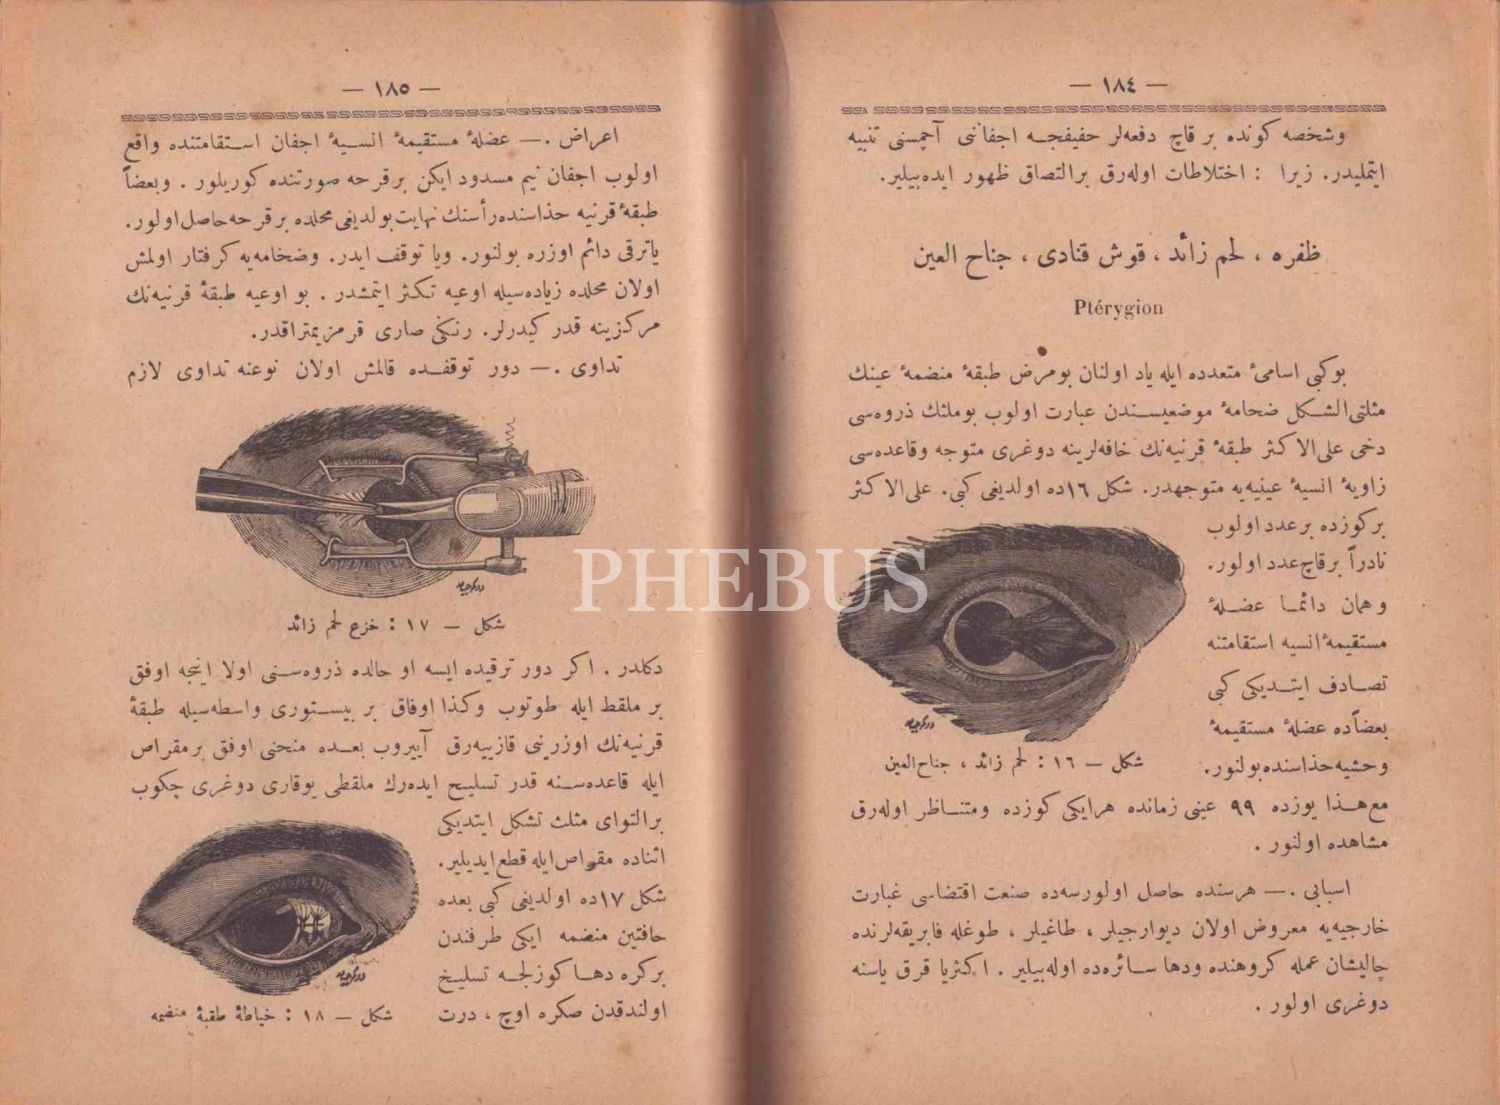 — ١٨٤ —
وشخصه كونده بر قاچ دفعه‌لر حفیفجه اجفاننی آچمسنی تنبیه
ایتملیدر. زیرا : اختلاطات اوله‌رق برالتصاق ظهور ایده‌بیلیر.
ظفره ، لحم زائد ، قوش قنادی ، جناح العین
Ptérygion
بوكبی اسامیٔ متعدده ایله یاد اولنان بومرض طبقهٔ منضمهٔ عینك
مثلثی‌الشكل ضخامهٔ موضعیسندن عبارت اولوب بومثلثك ذروه‌سی
دخی علی‌الاكثر طبقهٔ قرنیه‌نك حافه‌لرینه دوغری متوجه وقاعده‌سی
زاویهٔ انسیهٔ عینیه‌یه متوجهدر. شكل ١٦ده اولدیغی كبی. علی‌الاكثر
بركوزده برعدد اولوب
نادراً برقاچ عدد اولور.
وهمان دائما عضلهٔ
مستقیمهٔ انسیه استقامتنه
تصادف ایتدیكی كبی
بعضاًده عضلهٔ مستقیمهٔ
وحشیه‌حذاسنده‌بولنور.
شكل — ١٦ : لحم زائد ، جناح‌العین
مع‌هذا یوزده ٩٩ عینی زمانده هرایكی كوزده ومتناظر اوله‌رق
مشاهده اولنور .
اسبابی .— هرسنده حاصل اولورسه‌ده صنعت اقتضاسی غبارت
خارجیه‌یه معروض اولان دیوارجیلر ، طاغیلر ، طوغله فابریقه‌لرنده
چالیشان عمله كروهنده ودها سائره‌ده اوله‌بیلیر . اكثریا قرق یاسنه
دوغری اولور .
— ١٨٥ —
اعراض .— عضلهٔ مستقیمهٔ انسیهٔ اجفان استقامتنده واقع
اولوب اجفان نیم مسدود ایكن برقرحه صورتنده كوریلور . وبعضاً
طبقهٔ قرنیه حذاسنده‌رأسنك نهایت‌بولدیغی محلده برقرحه‌حاصل‌اولور.
یاترقی دائم اوزره بولنور. ویا توقف ایدر. وضخامه‌یه كرفتار اولمش
اولان محلده زیاده‌سیله اوعیه تكثر ایتمشدر . بو اوعیه طبقهٔ قرنیه‌نك
مركزینه قدر كیدرلر. رنكی صاری قرمزیمتراقدر.
تداوی .— دور توقفده قالمش اولان نوعنه تداوی لازم
شكل — ١٧ : خزع لحم زائد
دكلدر . اكر دور ترقیده ایسه او حالده ذروه‌سنی اولا اینجه اوفق
بر ملقط ایله طوتوب وكذا اوفاق بر بیستوری واسطه‌سیله طبقهٔ
قرنیه‌نك اوزرنی قازییه‌رق آییروب بعده منحنی اوفق برمقراص
ایله قاعده‌سنه قدر تسلیخ ایده‌رك ملقطی یوقاری دوغری چكوب
برالتوای مثلث تشكل ایتدیكی
اثناده مقراص‌ایله قطع‌ایدیلیر.
شكل ١٧ده اولدیغی كبی بعده
حافتین منضمه ایكی طرفندن
بركره دها كوزلجه تسلیخ
اولندقدن صكره اوچ ، درت
شكل — ١٨ : خیاطهٔ طقبهٔ منضمه
PHEBUS